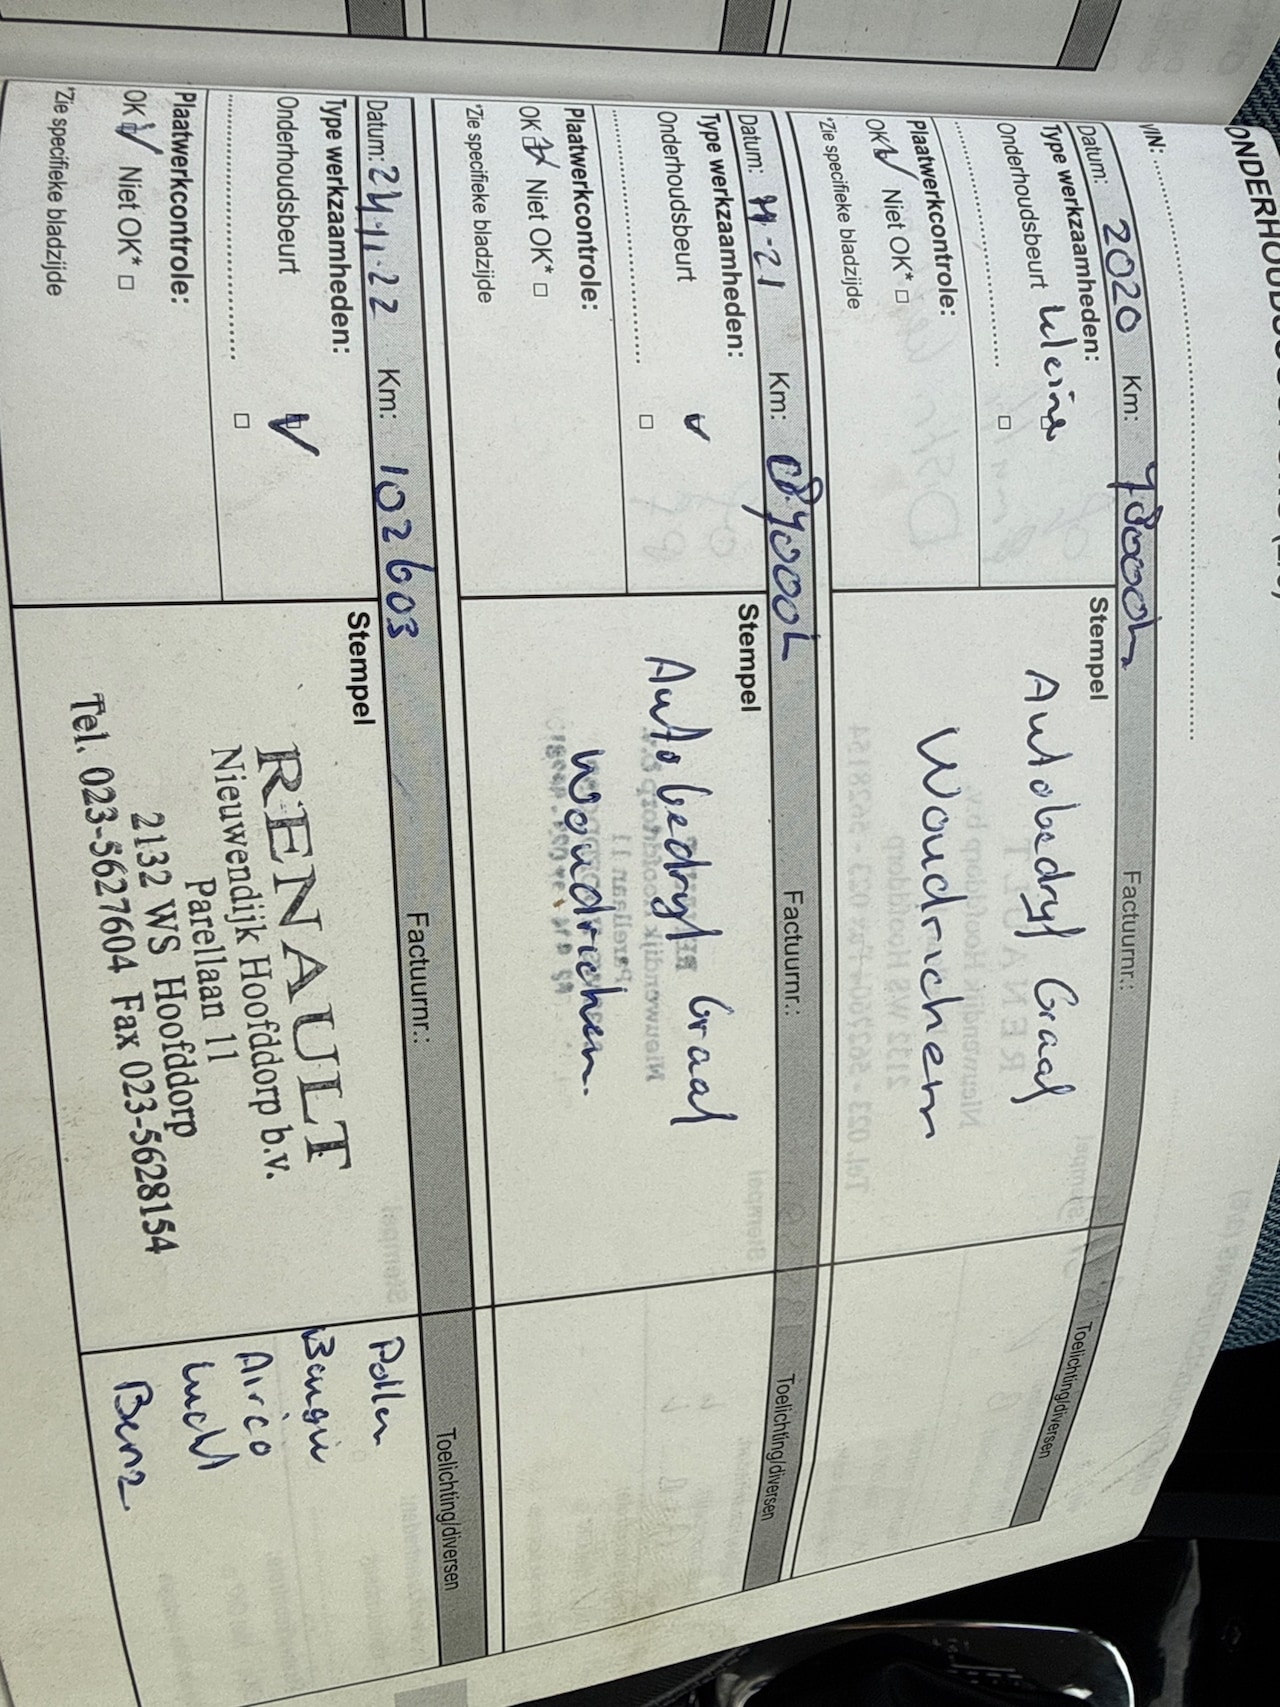 VIN:
Datum: 2020 Km: 78000km Factuurnr.: Toelichting/diversen
Type werkzaamheden:
Onderhoudsbeurt kleine □
□
Plaatwerkcontrole:
OK ✓ Niet OK* □
*Zie specifieke bladzijde
Stempel
Autobedryf Graal
Woudrichem
Datum: -21 Km: Factuurnr.: Toelichting/diversen
Type werkzaamheden:
Onderhoudsbeurt ✓
□
Plaatwerkcontrole:
OK ✓ Niet OK* □
*Zie specifieke bladzijde
Stempel
Autobedryf Graal
Woudrichem.
Datum: 24.11.22 Km: 102603 Factuurnr.: Toelichting/diversen
Type werkzaamheden:
Onderhoudsbeurt ✓
□
Plaatwerkcontrole:
OK ✓ Niet OK* □
*Zie specifieke bladzijde
Stempel
RENAULT
Nieuwendijk Hoofddorp b.v.
Parellaan 11
2132 WS Hoofddorp
Tel. 023-5627604 Fax 023-5628154
Pollen
Airco
Lucht